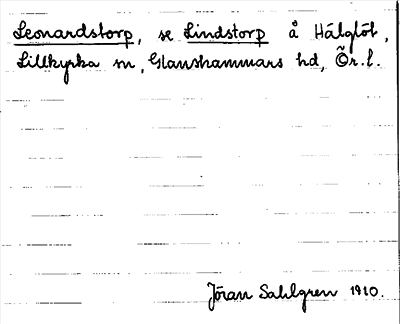 Leonardstorp, se Lindstorp å Hálglöt,
Lillkyrka sn, Glanshammars hd, Ör.l.
Jöran Sahlgren 1910.